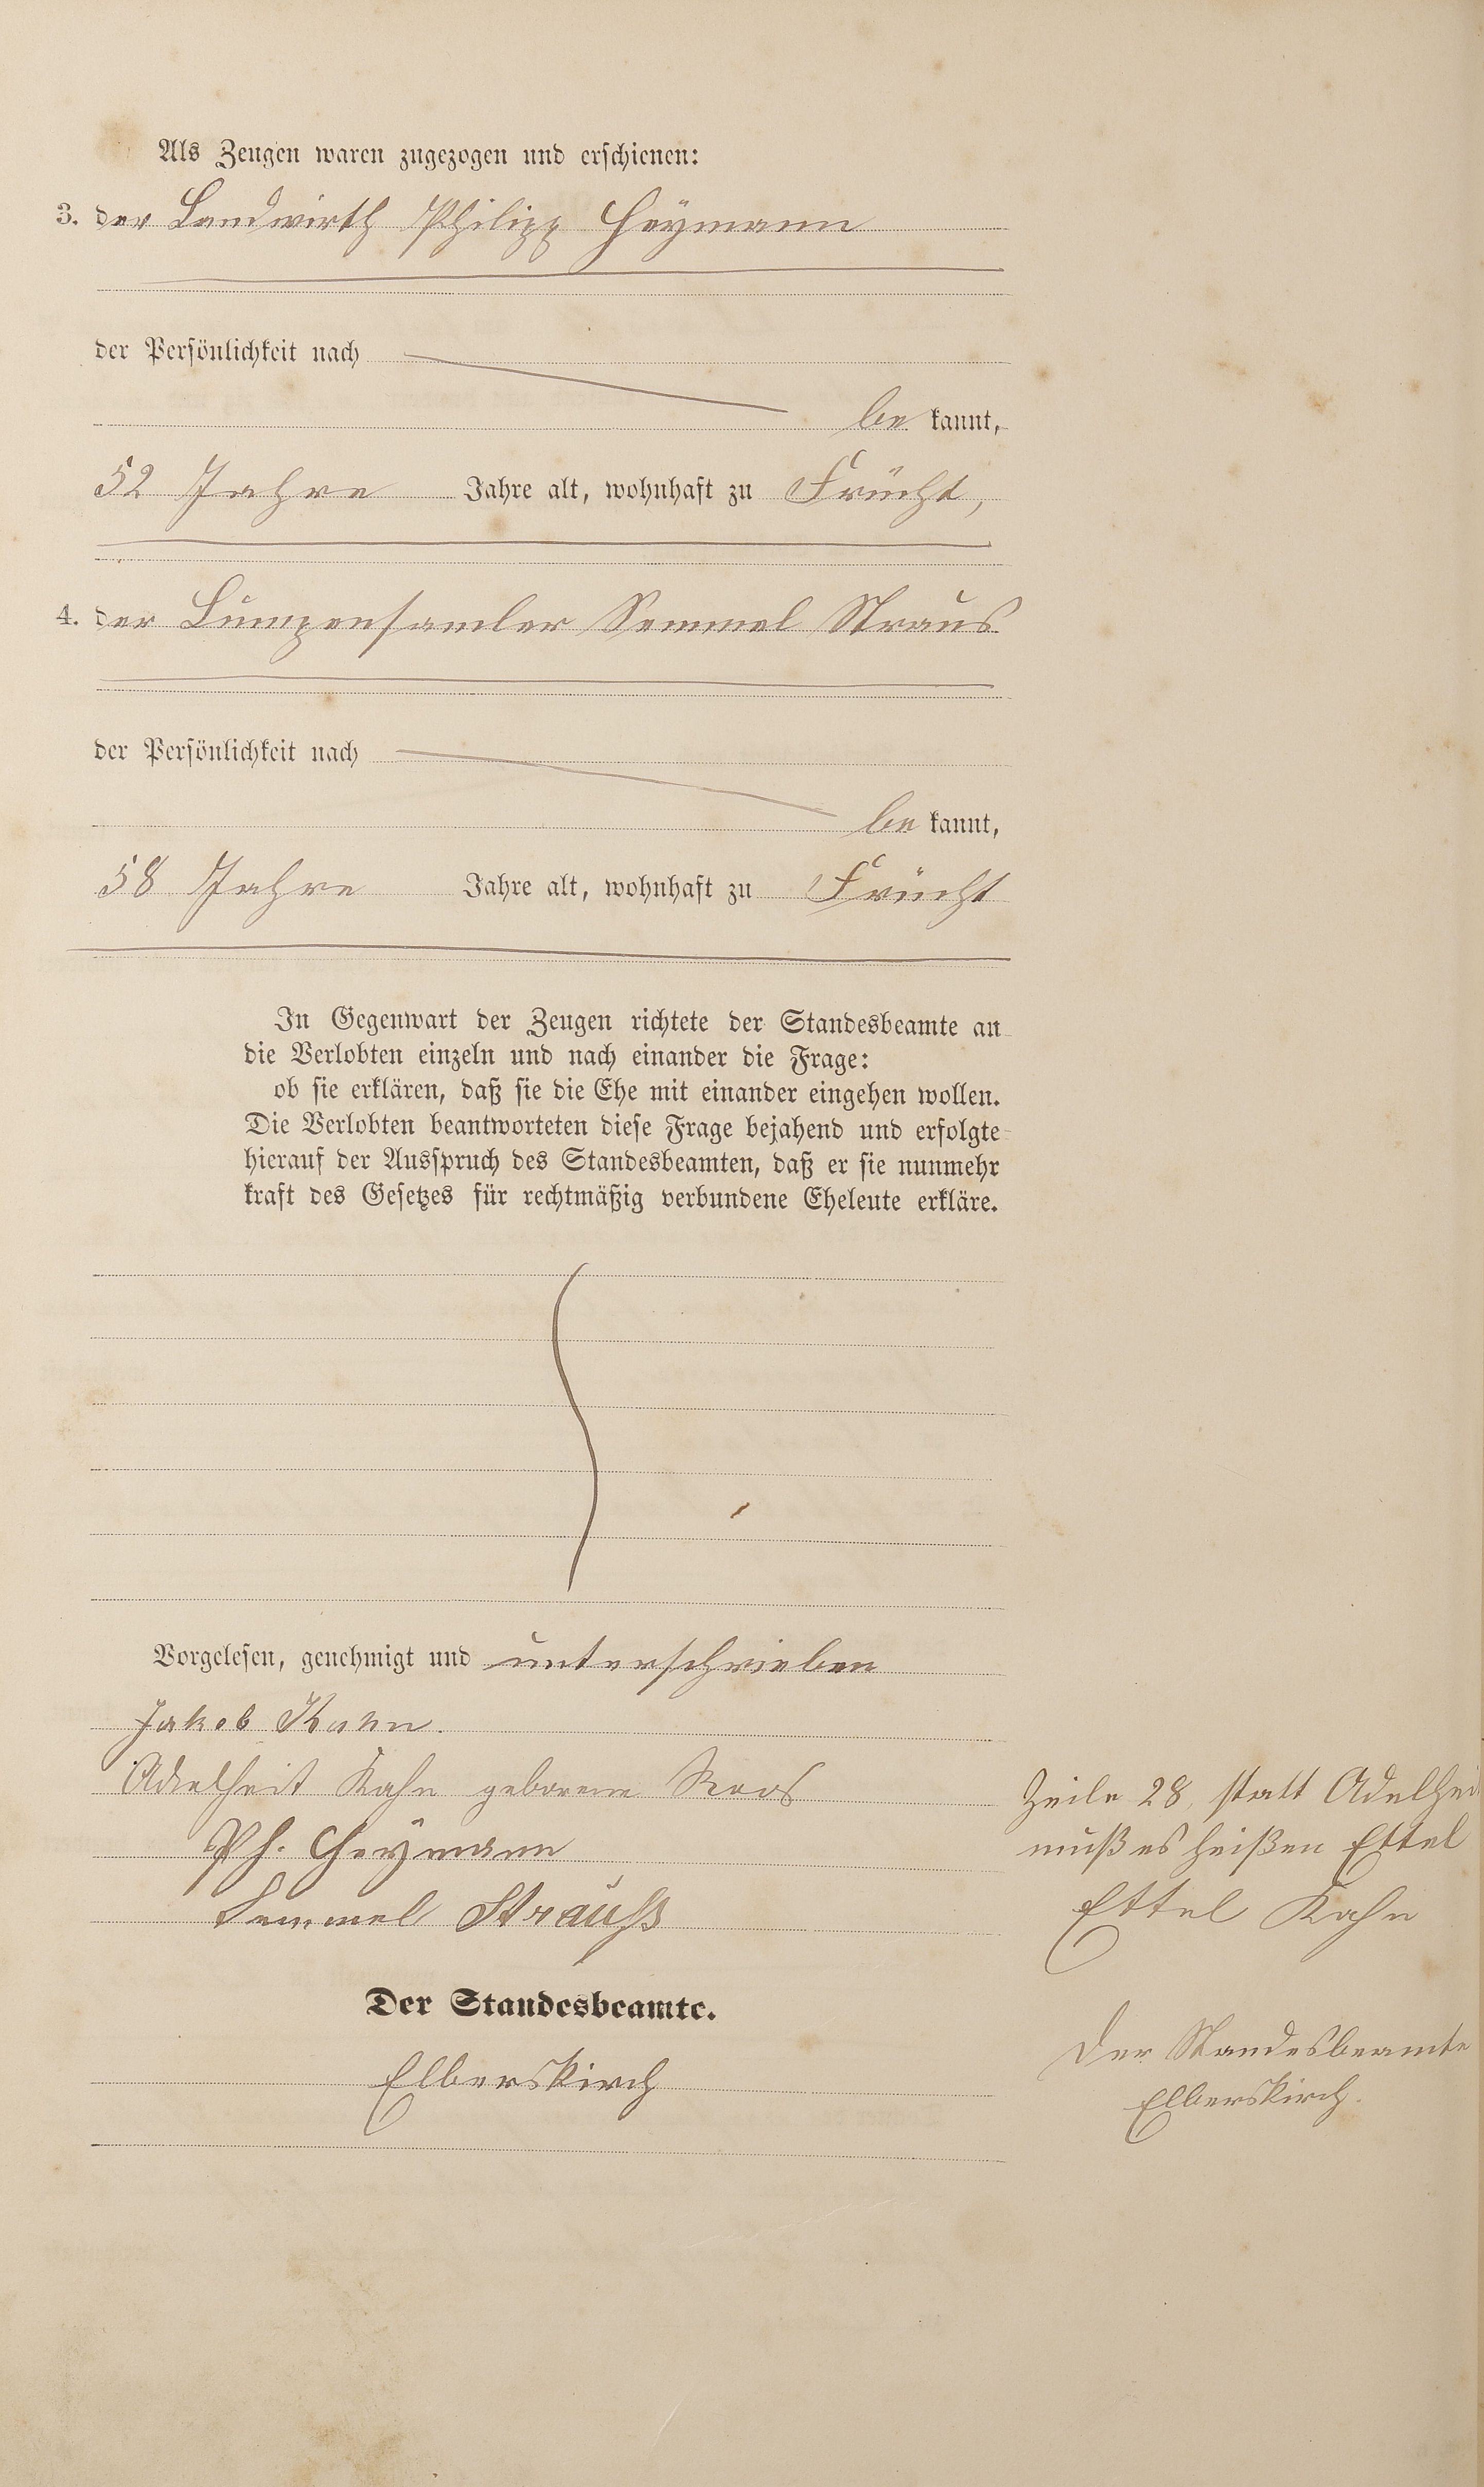 Als Zeugen waren zugezogen und erschienen:
3. der Landwirth Philipp Heymann
der Persönlichkeit nach
be kannt,
52 Jahre Jahre alt, wohnhaft zu Frücht,
4. der Lumpensamler Semmel Straus
der Persönlichkeit nach
be kannt,
58 Jahre Jahre alt, wohnhaft zu Frücht
In Gegenwart der Zeugen richtete der Standesbeamte an
die Verlobten einzeln und nach einander die Frage:
ob sie erklären, daß sie die Ehe mit einander eingehen wollen.
Die Verlobten beantworteten diese Frage bejahend und erfolgte
hierauf der Ausspruch des Standesbeamten, daß er sie nunmehr
kraft des Gesetzes für rechtmäßig verbundene Eheleute erkläre.
Vorgelesen, genehmigt und unterschrieben
Jakob Kahn.
Adelheit Kahn geborene Roos
Ph. Heymann
Semmel Strauß
Der Standesbeamte.
Elberskirch
Zeile 28, statt Adelheit
muß es heißen Ettel
Ettel Kahn
Der Standesbeamte
Elberskirch.